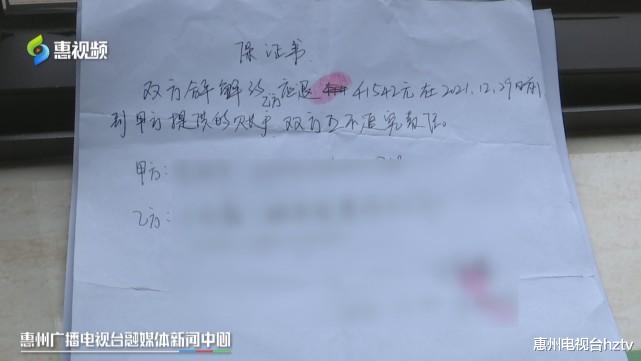 惠视频
保证书
双方和解协议 乙方应退 41542元在2021.12.29日前
到甲方提供的账户,双方互不追究责任。
甲方:
乙方:
惠州广播电视台融媒体新闻中心
惠州电视台hztv